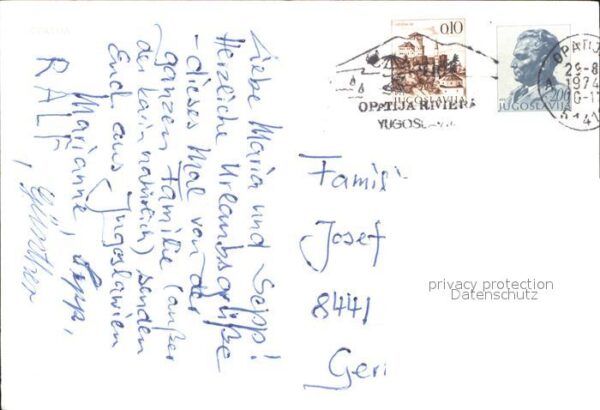 Liebe Maria und Sepp!
Herzliche Urlaubsgrüße
- dieses Mal von der
ganzen Familie (außer
der Karin natürlich) senden
Euch aus Jugoslawien
Marianne, Sepp,
RALF, Günther
0,10
JUGOSLAVIJA
2,00
JUGOSLAVIJA
OPATIJA RIVIERA
YUGOSLAVIA
OPATIJA
1974
Famili
Josef
8441
Geri
privacy protection
Datenschutz